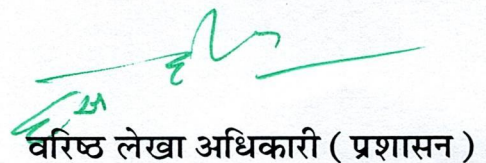 वरिष्ठ लेखा अधिकारी ( प्रशासन )